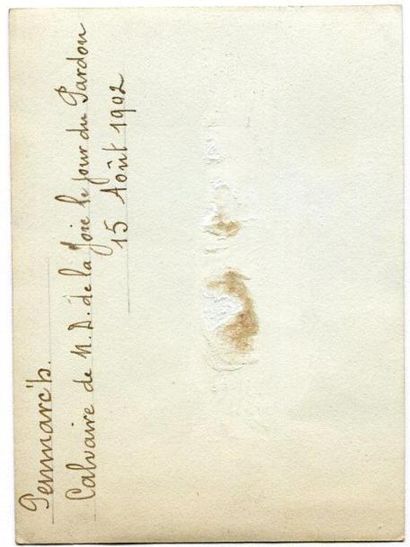 Penmarc'h.
Calvaire de N. D. de la Joie le jour du Pardon
15 Août 1902